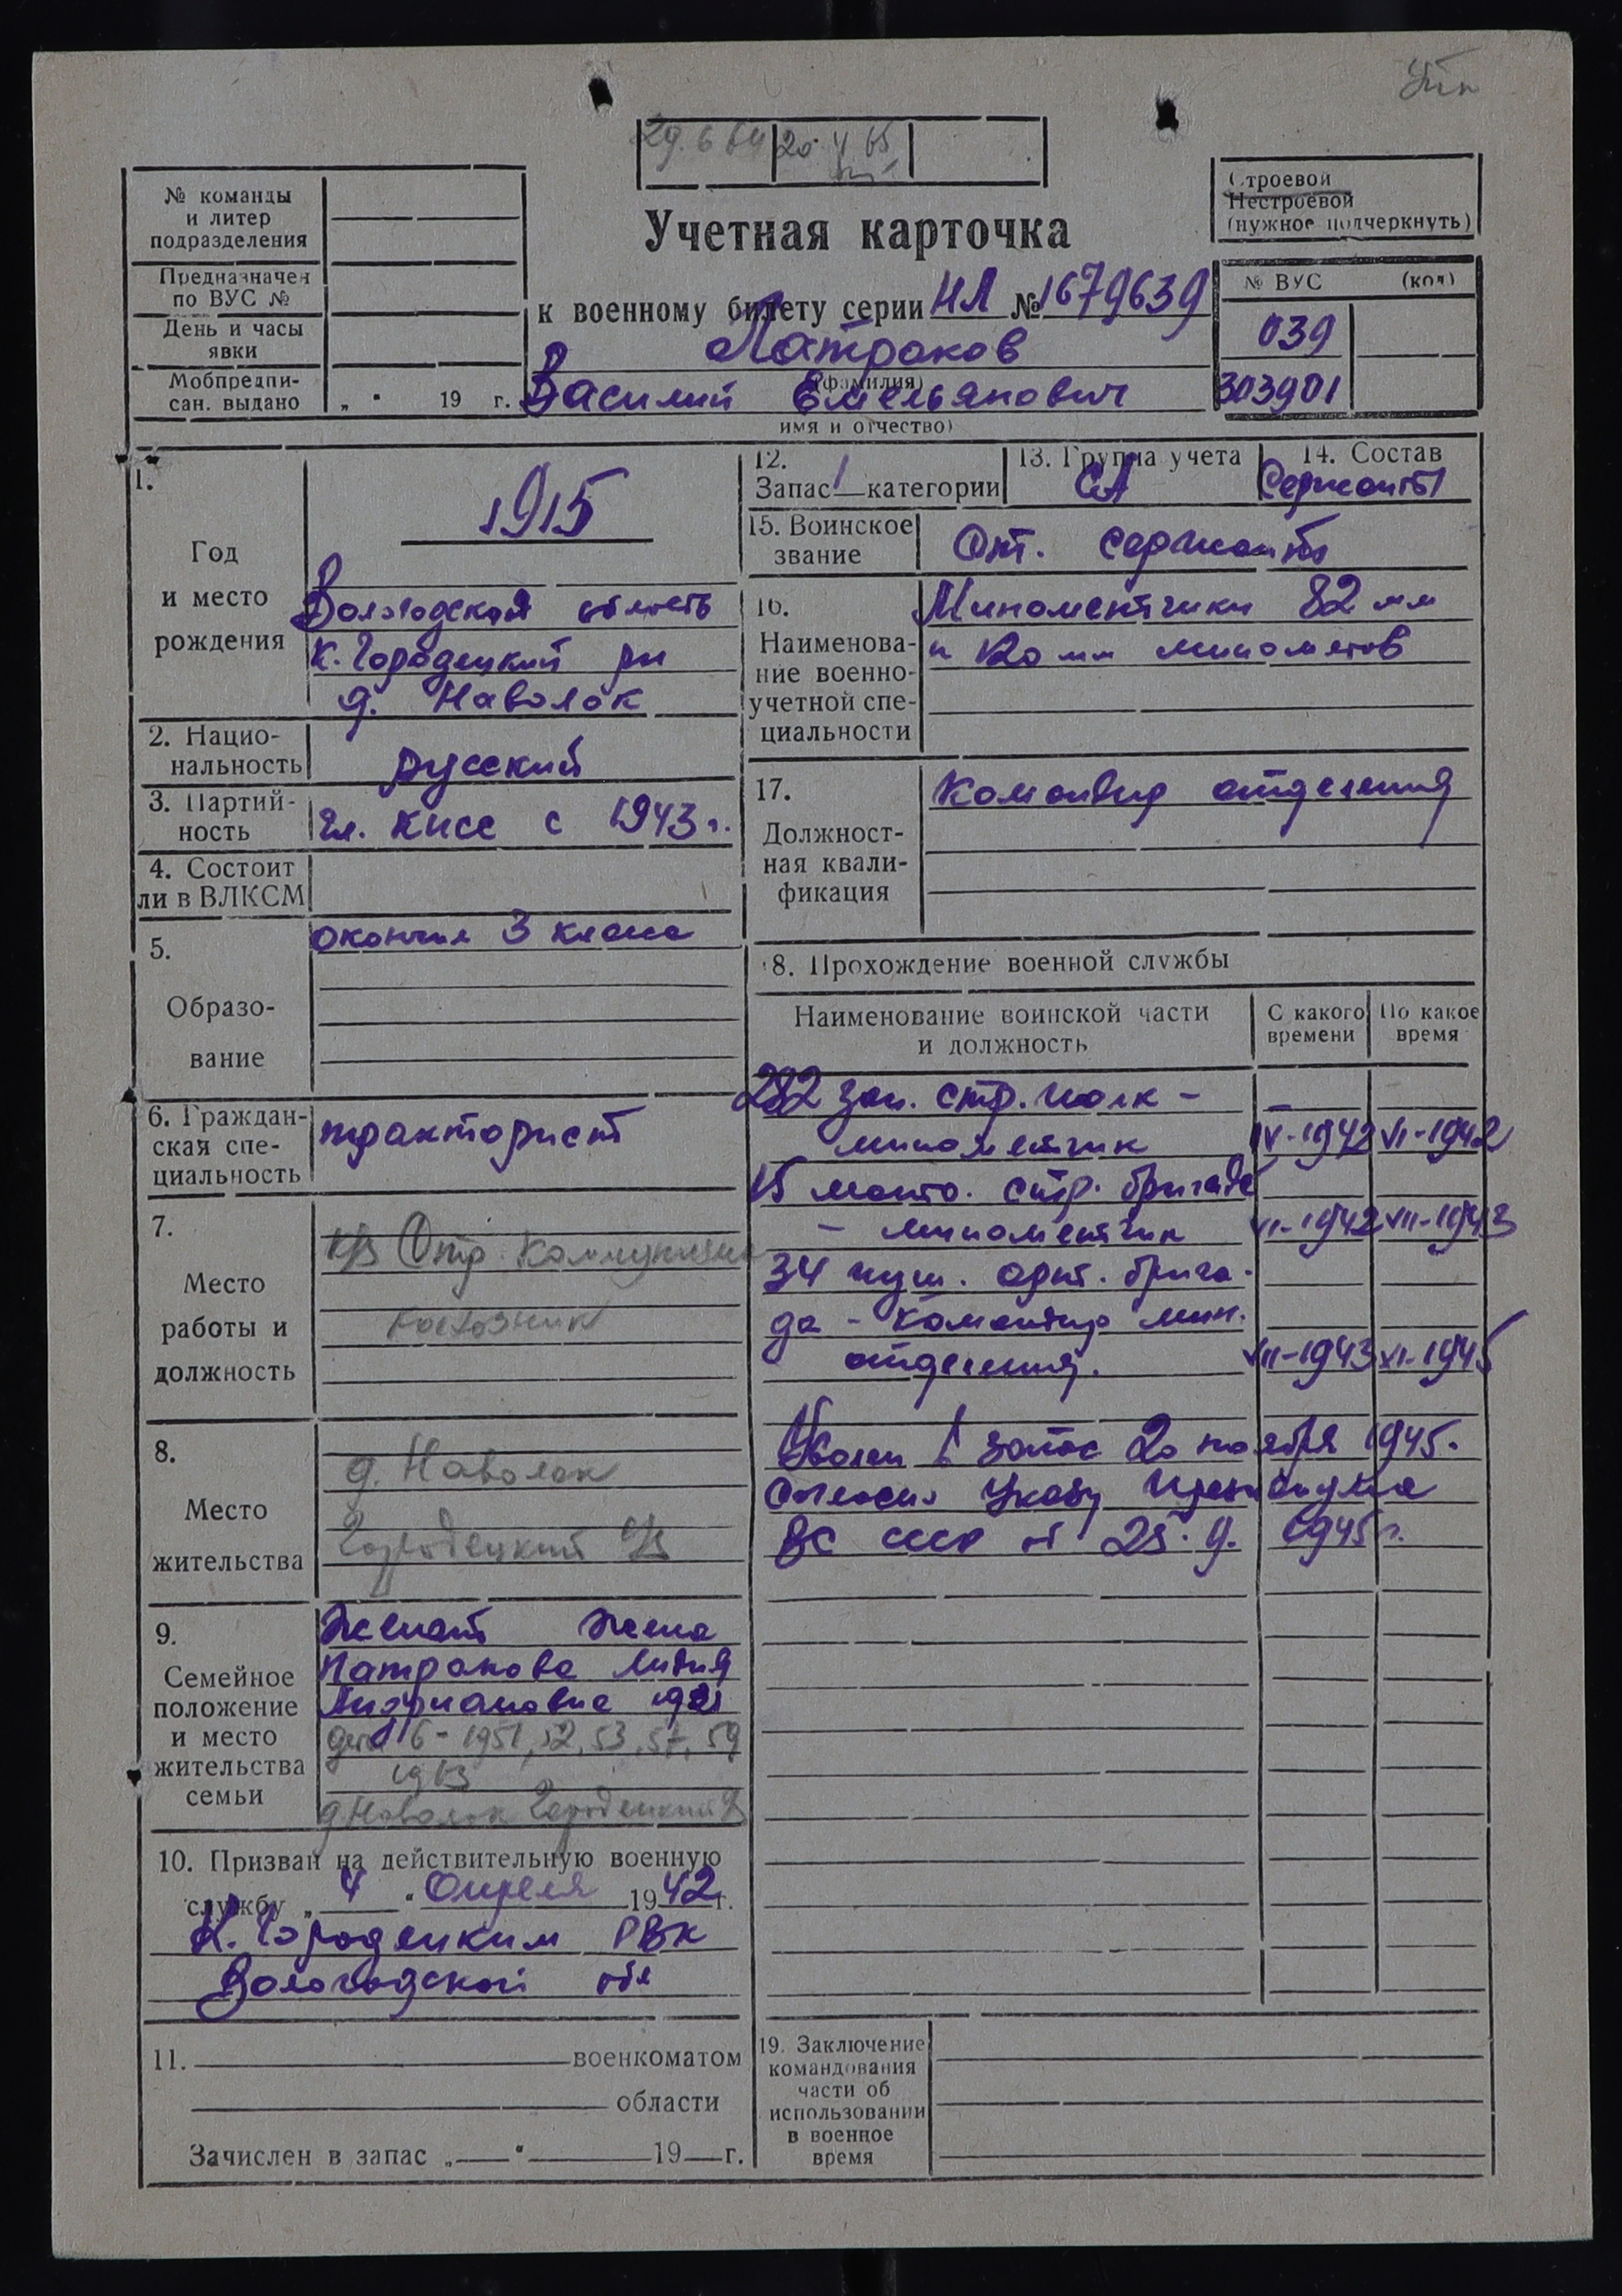 29.6 64 20 V 65
Строевой
Нестроевой
(нужное подчеркнуть)
№ команды
и литер
подразделения
Предназначен
по ВУС №
День и часы
явки
Мобпредпи-
сан. выдано „ " 19 г.
Учетная карточка
к военному билету серии НЛ № 1679639
Патраков
(фамилия)
Василий Емельянович
имя и отчество)
№ ВУС (код)
039
303901
1.
Год
и место
рождения
1915
Вологодская область
К. Городецкий рн
д. Наволок
2. Нацио-
нальность
русский
3. Партий-
ность
Чл. КПСС с 1943 г.
4. Состоит
ли в ВЛКСМ
5.
Образо-
вание
окончил 3 класса
6. Граждан-
ская спе-
циальность
тракторист
7.
Место
работы и
должность
к/з Отр. Коммунизма
колхозник
8.
Место
жительства
д. Наволок
Городецкий с/с
9.
Семейное
положение
и место
жительства
семьи
Женат жена
Патракова Лидия
Андриановна 1921
дети 6 - 1951, 52, 53, 57, 59
1963
д. Наволок Городецкий с/с
10. Призван на действительную военную
службу „ 4 " Апреля 1942 г.
К. Городецким РВК
Вологодской обл
11. военкоматом
области
Зачислен в запас „ " 19 г.
12.
Запас 1 категории
13. Группа учета
СА
14. Состав
Сержанты
15. Воинское
звание
Ст. сержант
16.
Наименова-
ние военно-
учетной спе-
циальности
Минометчики 82 мм
и 120 мм минометов
17.
Должност-
ная квали-
фикация
Командир отделения
18. Прохождение военной службы
Наименование воинской части
и должность
С какого
времени
По какое
время
282 зап. стр. полк -
минометчик IV-1942 VI-1942
15 мото. стр. бригада
- минометчик VI-1942 VII-1943
34 пуш. арт. брига-
да - командир мин.
отделения. VII-1943 XI-1945
Уволен в запас 20 ноября 1945.
Согласно Указу Президиума
ВС СССР от 25.9. 1945 г.
19. Заключение
командования
части об
использовании
в военное
время